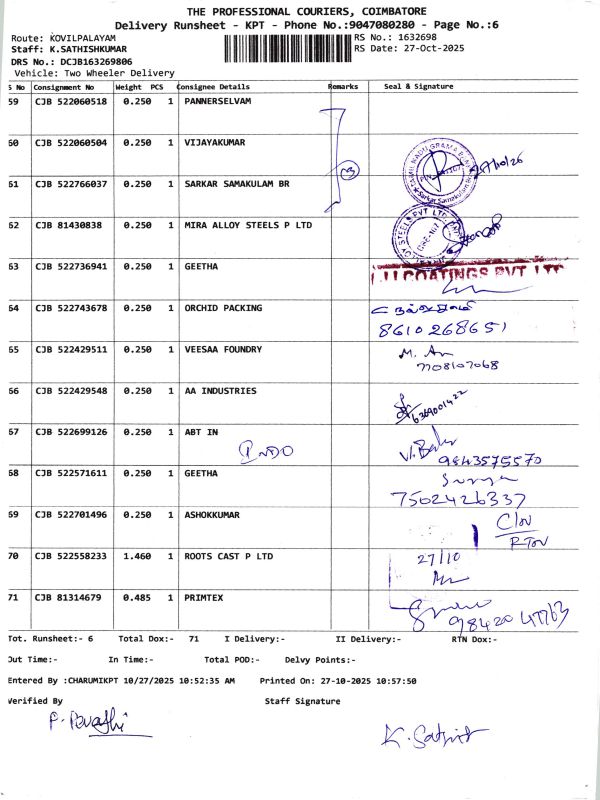 THE PROFESSIONAL COURIERS, COIMBATORE
Delivery Runsheet - KPT - Phone No.:9047080280 - Page No.:6
Route: KOVILPALAYAM RS No.: 1632698
Staff: K.SATHISHKUMAR RS Date: 27-Oct-2025
DRS No.: DCJB163269806
Vehicle: Two Wheeler Delivery
S No Consignment No Weight PCS Consignee Details Remarks Seal & Signature
59 CJB 522060518 0.250 1 PANNERSELVAM
60 CJB 522060504 0.250 1 VIJAYAKUMAR
61 CJB 522766037 0.250 1 SARKAR SAMAKULAM BR
62 CJB 81430838 0.250 1 MIRA ALLOY STEELS P LTD
63 CJB 522736941 0.250 1 GEETHA
COATINGS PVT LTD
64 CJB 522743678 0.250 1 ORCHID PACKING
8610268651
65 CJB 522429511 0.250 1 VEESAA FOUNDRY
7708107068
66 CJB 522429548 0.250 1 AA INDUSTRIES
6369001422
67 CJB 522699126 0.250 1 ABT IN
9843575570
68 CJB 522571611 0.250 1 GEETHA
Surya
7502426337
69 CJB 522701496 0.250 1 ASHOKKUMAR
70 CJB 522558233 1.460 1 ROOTS CAST P LTD 27/10
71 CJB 81314679 0.485 1 PRIMTEX
Tot. Runsheet:- 6 Total Dox:- 71 I Delivery:- II Delivery:- RTN Dox:-
Out Time:- In Time:- Total POD:- Delvy Points:-
Entered By :CHARUMIKPT 10/27/2025 10:52:35 AM Printed On: 27-10-2025 10:57:50
Verified By Staff Signature
K. Sathish